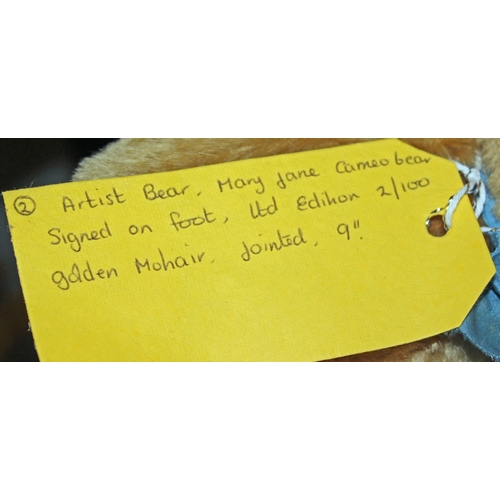 ② Artist Bear. Mary Jane Cameo bear
Signed on foot, Ltd Edition 2/100
golden Mohair. Jointed. 9".